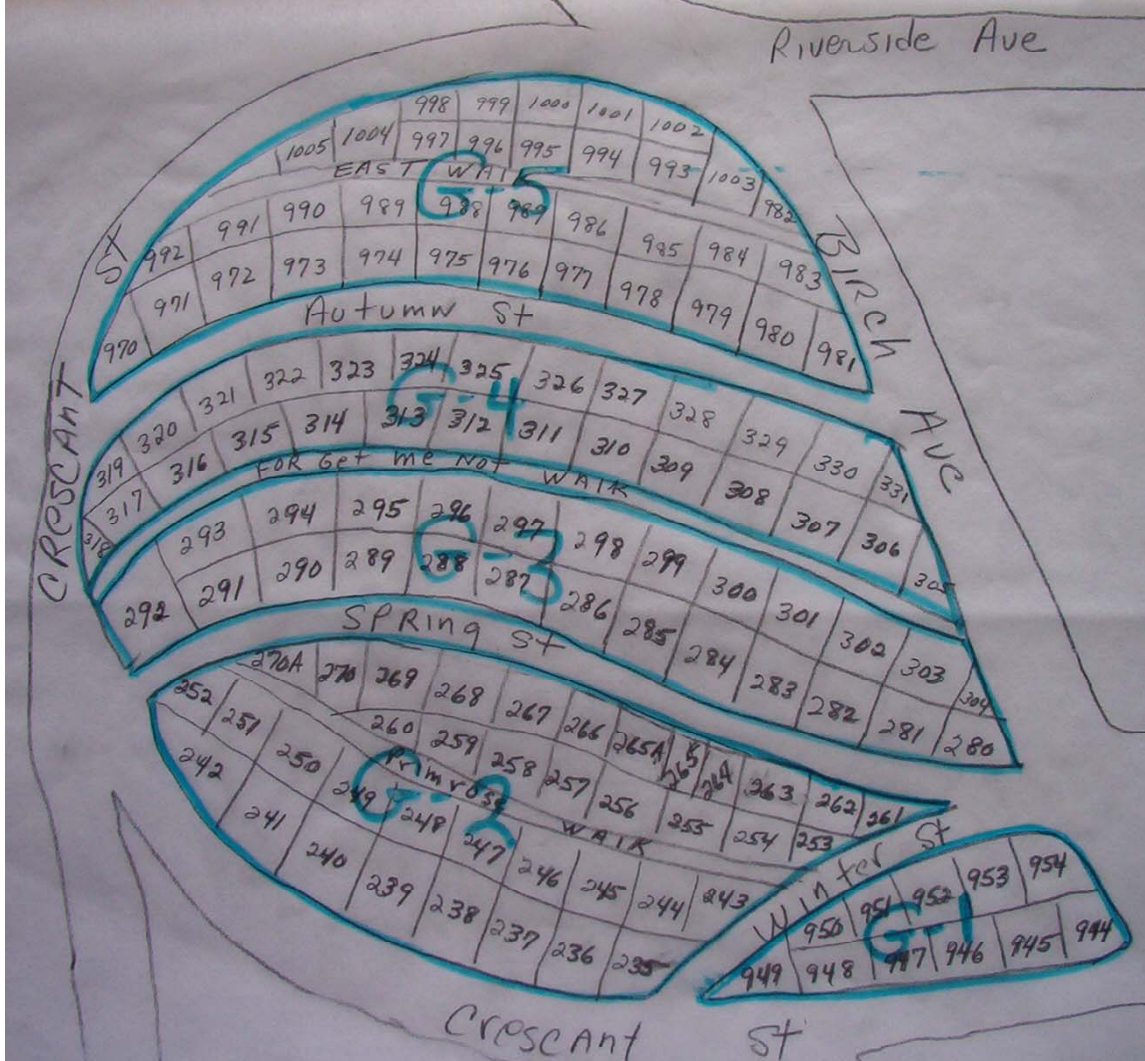 Riverside Ave
998 999 1000 1001 1002
1005 1004 997 996 995 994 993 1003 982
EAST WALK
G-5
992 991 990 989 988 989 986 985 984 983
970 971 972 973 974 975 976 977 978 979 980 981
ST
BIRCH
Autumn St
AVE
CRESCANT
319 320 321 322 323 324 325 326 327 328 329 330 331
G-4
318 317 316 315 314 313 312 311 310 309 308 307 306 305
FOR Get me Not WALK
293 294 295 296 297 298 299 300 301 302 303 304
G-3
292 291 290 289 288 287 286 285 284 283 282 281 280
SPRing St
270A 270 269 268 267 266 265A 265 264 263 262 261
260 259 258 257 256 255 254 253
Primrose WALK
G-2
252 251 250 249 248 247 246 245 244 243
242 241 240 239 238 237 236 235
Winter St
950 951 952 953 954
G-1
949 948 947 946 945 944
CrescAnt St